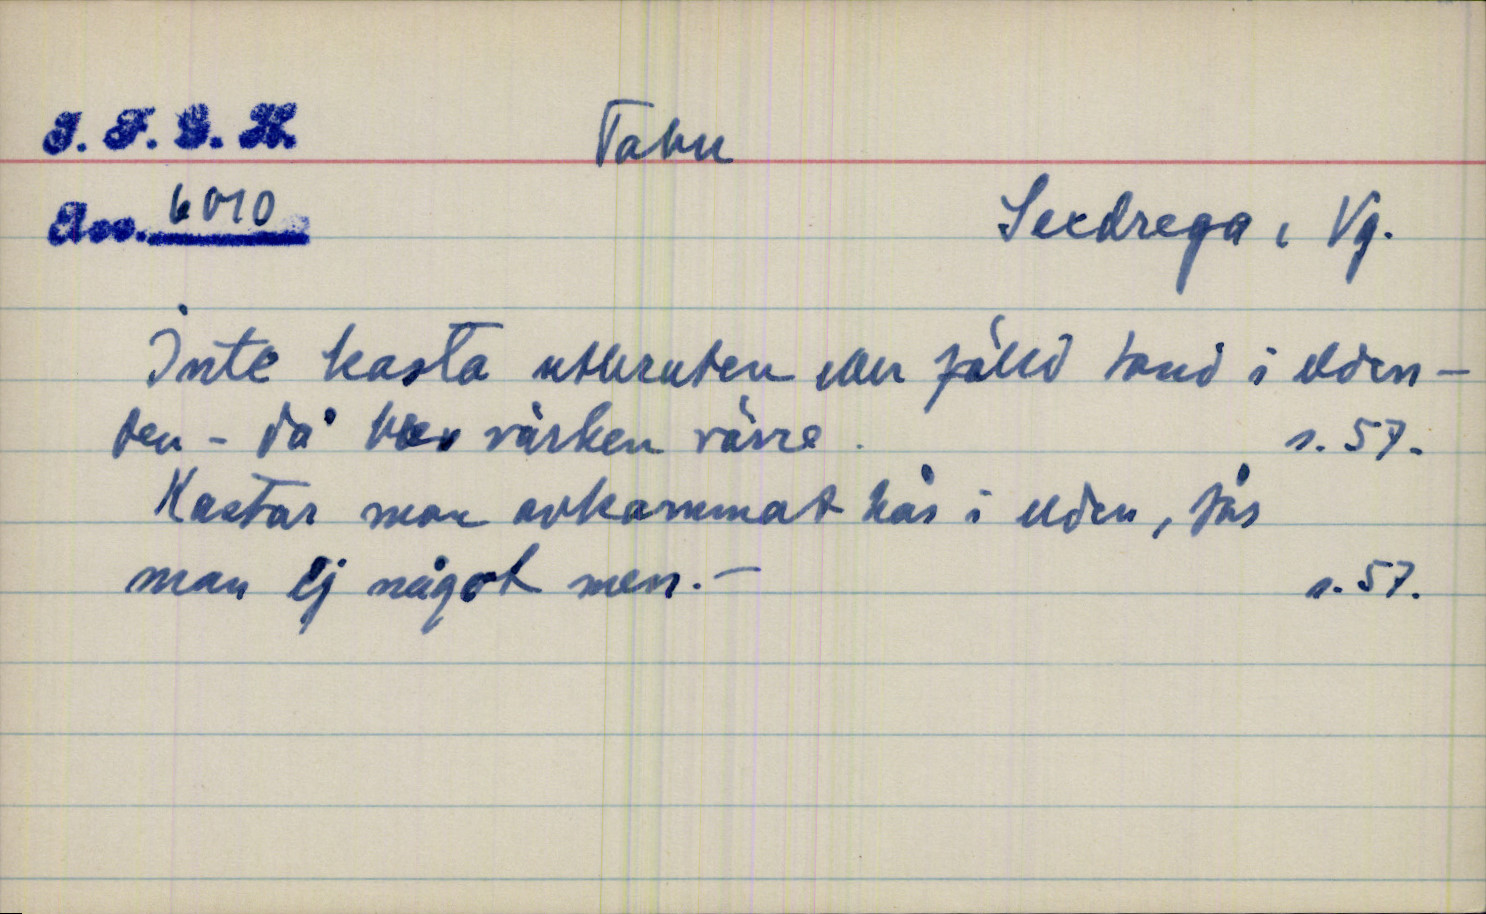 I. F. G. H.
Tabu
Acc. 6010
Sexdrega, Vg.
Inte kasta utbruten eller fälld tand i elden –
ten – då blev värken värre. s. 57.
Kastar man avkammat hår i elden, fås
man ej något men. – s. 57.